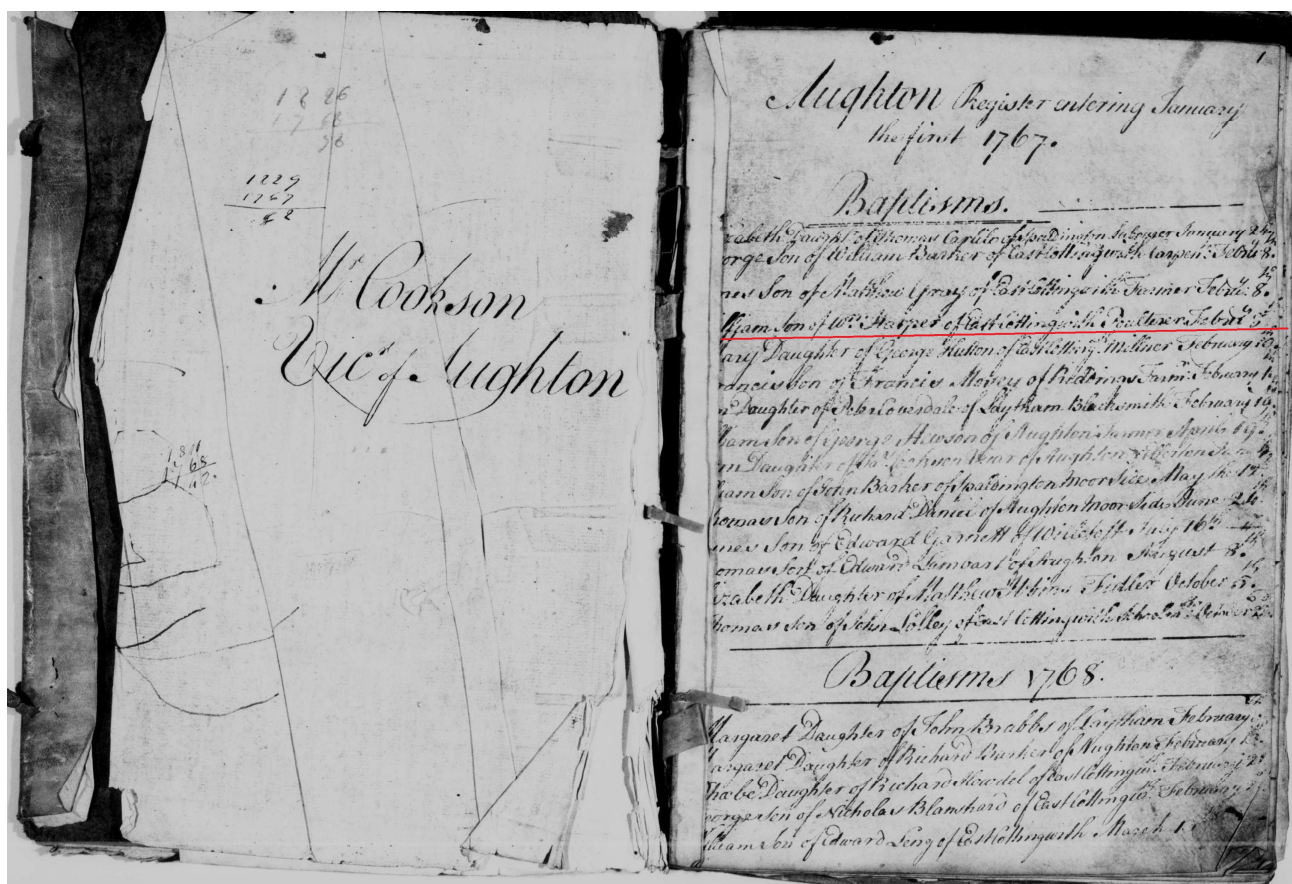 1826
1768
58
1229
1767
62
Mr Cookson
Vicr of Aughton
1811
1768
1
Aughton Register entering January
the first 1767.
Baptisms.
zabeth Daught of Thomas of Spaldington Labourer January 24
orge Son of William Barker of East Cottingwith Carpenr Febru 8.
mes Son of Matthew Gray of East Cottingwith Farmer Febru 8.
lliam Son of Wm Harper of East Cottingwith Poulterer Febru
ary Daughter of George Hutton of East Cottingw Millner February
rancis Son of Francis Movey of Riddings Farmr February
n Daughter of Peter Coverdale of Laytham Blacksmith February 19
lliam Son of George Hewson of Aughton Farmer April 19
nn Daughter of Cookson Vicar of Aughton
lliam Son of John Barker of Spaldington Moor Side May the 17
homas Son of Richard Daniel of Aughton Moor Side June 24
mes Son of Edward Garnett of July 16th
omas Son of Edward of Aughton August 8
izabeth Daughter of Matthew Fidler October 5
homas Son of John Lolley of east Cottingwith October
Baptisms 1768.
Margaret Daughter of John Brabbs of Laytham February
argaret Daughter of Richard Barker of Aughton February
hoebe Daughter of Richard Howdel of East Cottingw February
eorge son of Nicholas Blanshard of East Cottingw February
illiam Son of Edward Leng of East Cottingwith March 1